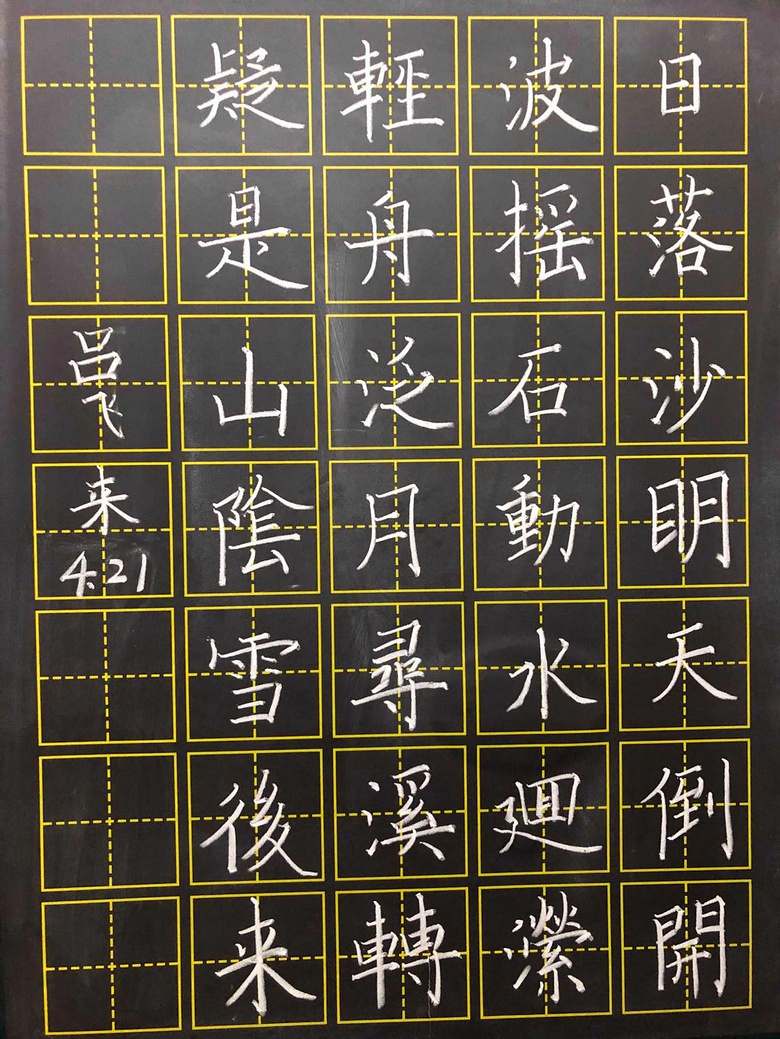 日落沙眀天倒開
波摇石動水廻瀠
輕舟泛月尋溪轉
疑是山陰雪後来
吕飞来4.21